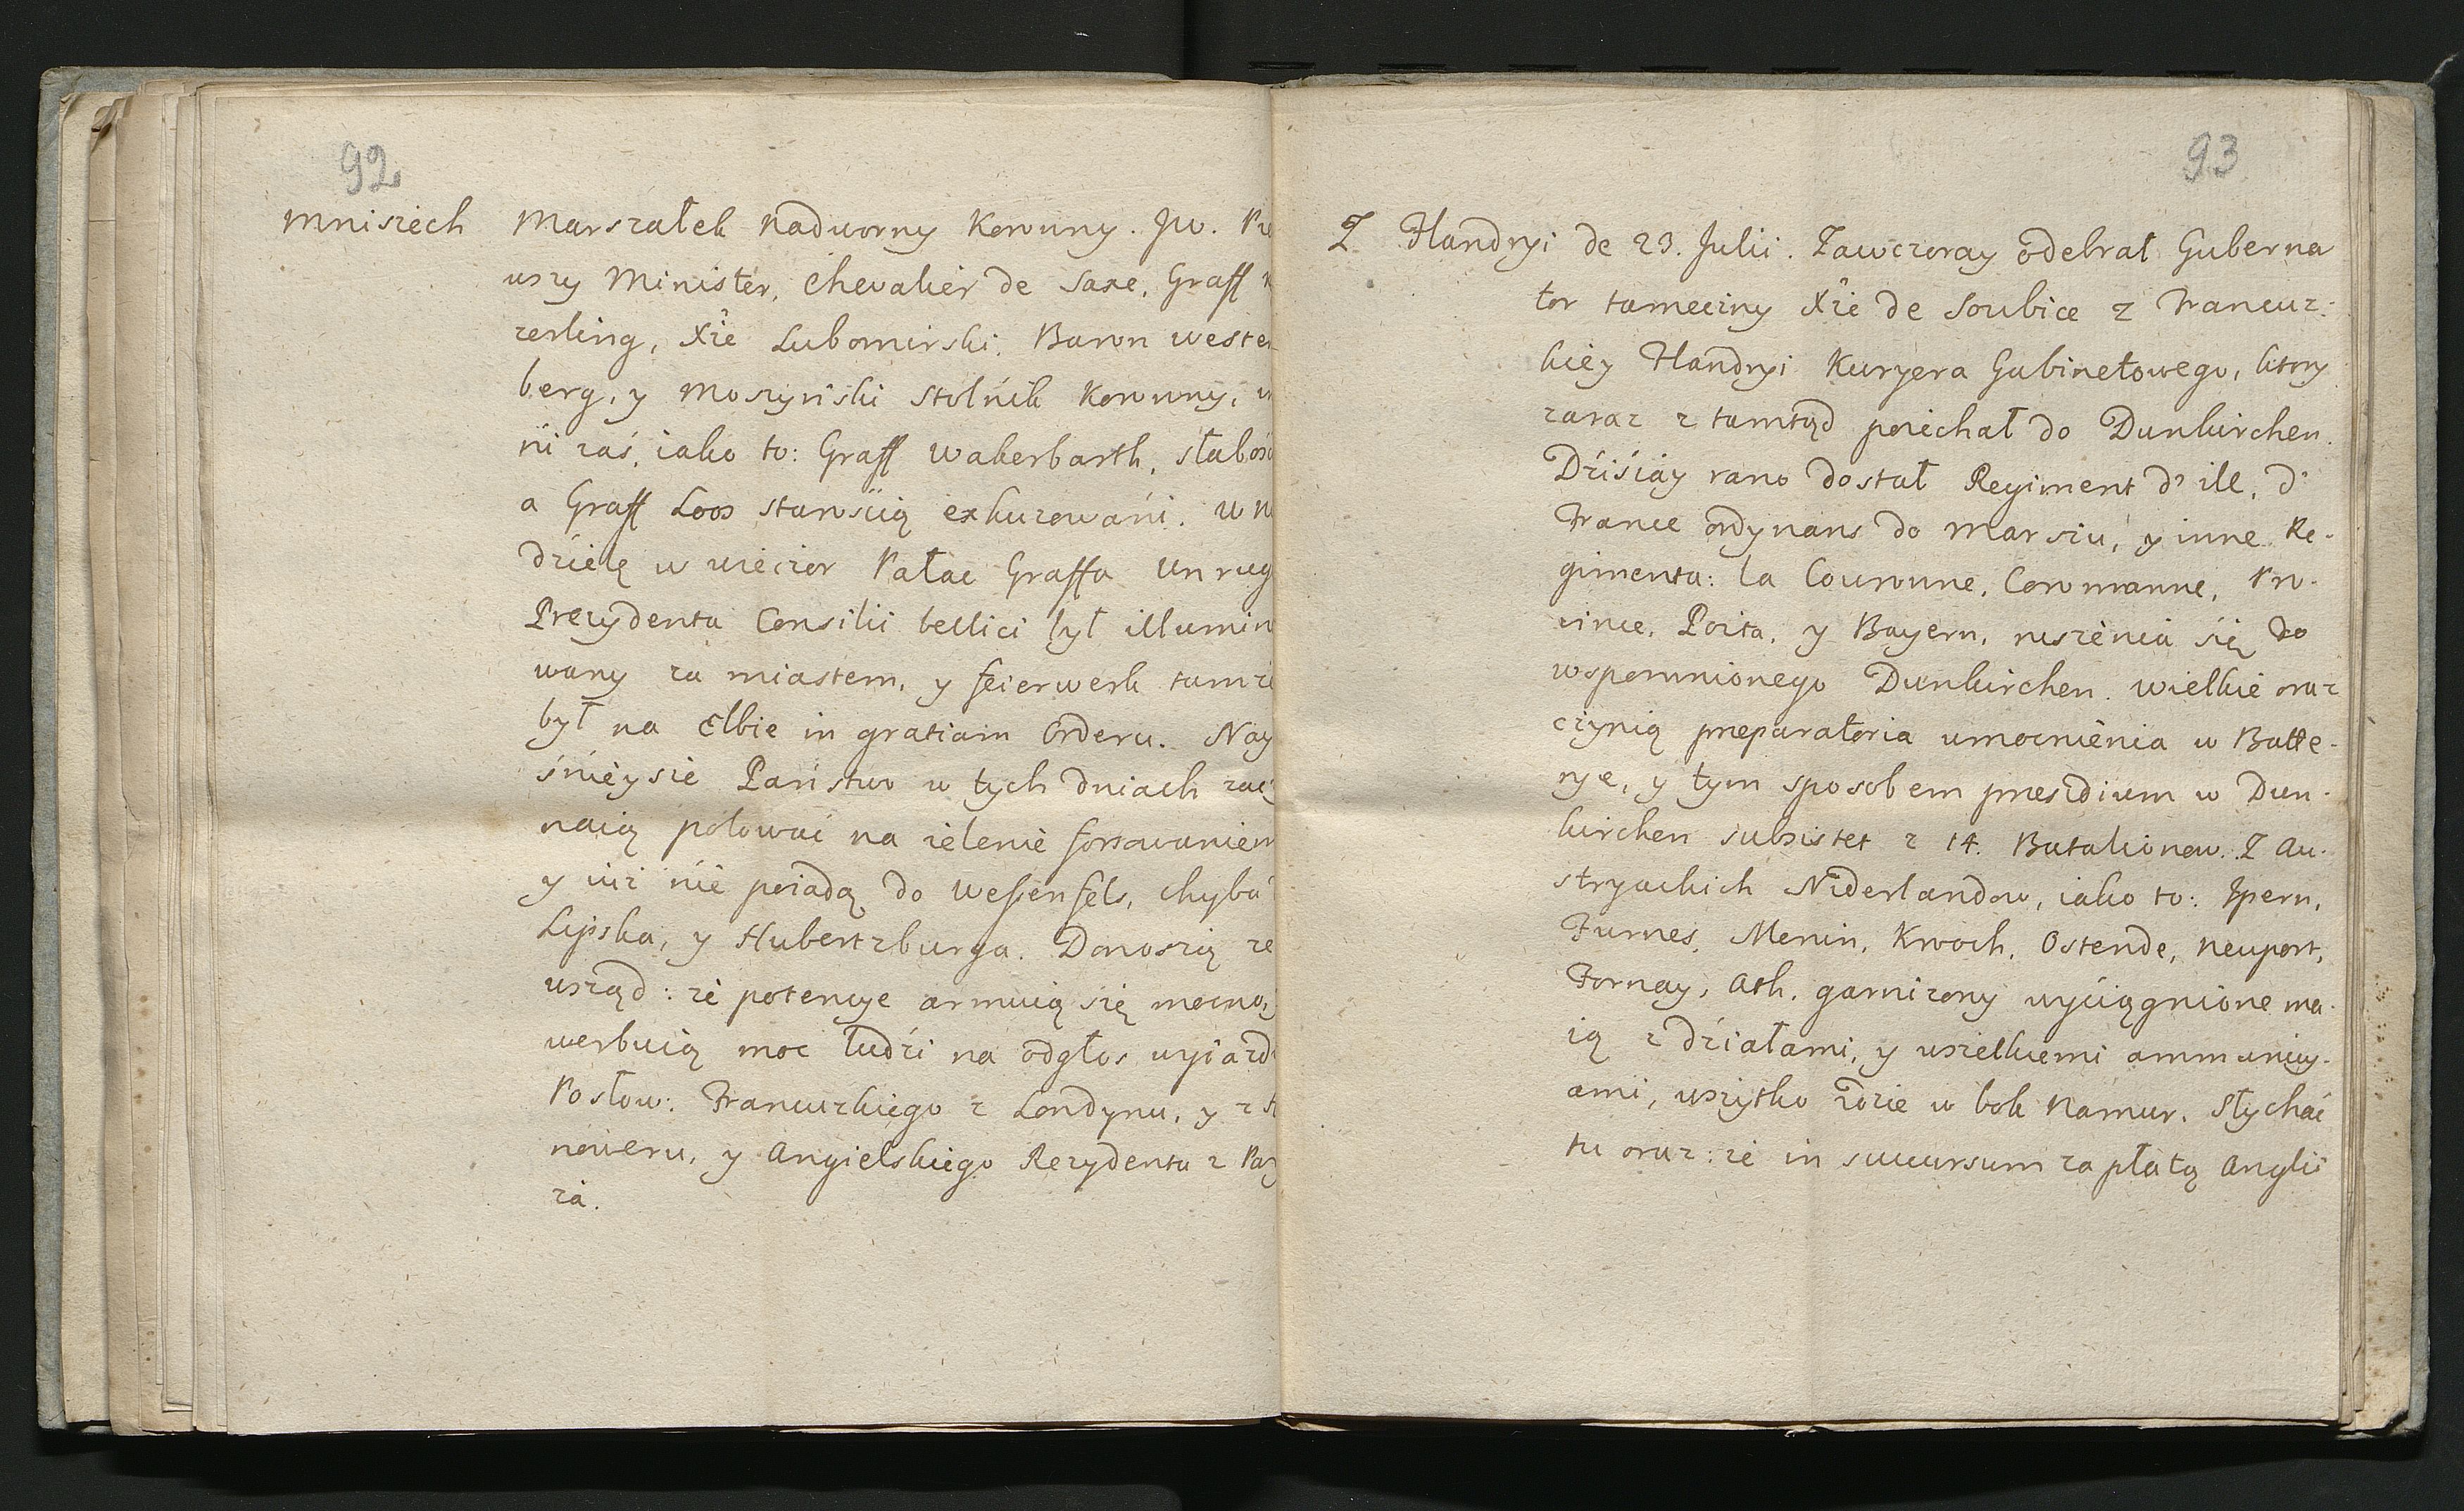 92
Mniszech Marszałek Nadworny Koronny. JW. Pie
wszy Minister, Chevalier de Saxe, Graff K
zerling, Xże Lubomirski, Baron Wester
berg, y Moszyński Stolnik Koronny, in
ni zaś, iako to: Graff Wakerbarth, słaboś
a Graff Loos starością exkuzowani. W Nie
dzielę w wieczor Pałac Graffa Unrug
Prezydenta Consilii bellici był illumin
wany za miastem, y feierwerk tamże
był na Elbie in gratiam Orderu. Nay
śnieysze Państwo w tych dniach zaczy
naią polować na ielenie forsowaniem
y iuż nie poiadą do Weßenfels, chyba
Lipska, y Hubertzburga. Donoszą ze
wsząd: że potencye armuią się mocno, y
werbuią moc ludzi na odgłos wyiazdu
Posłow: Francuzkiego z Londynu, y z H
noweru, y Angielskiego Rezydenta z Pary
ża.
93
Z Flandryi de 23. Julii. Zawczoray odebrał Guberna
tor tameczny Xże de Soubice z Francuz-
kiey Flandryi Kuryera Gabinetowego, ktory
zaraz z tamtąd poiechał do Dunkirchen.
Dzisiay rano dostał Regiment d' ill, d'
France ordynans do Marszu, y inne Re-
gimenta: la Couronne, Coromanne, Pro-
vince, Poita, y Bayern, ruszenia się do
wspomnionego Dunkirchen. Wielkie oraz
czynią preparatoria umocnienia w Batte-
rye, y tym sposobem presidium w Dun-
kirchen subsistet z 14. Batalionow. Z Au-
stryackich Niderlandow, iako to: Ipern,
Furnes, Menin, Knoch, Ostende, Neuport,
Tornay, Ath, garnizony wyciągnione ma-
ią z działami, y wszelkiemi ammunicy-
ami, wszytko idzie w bok Namur. Słychać
tu oraz: że in succursum za płatą Anglii